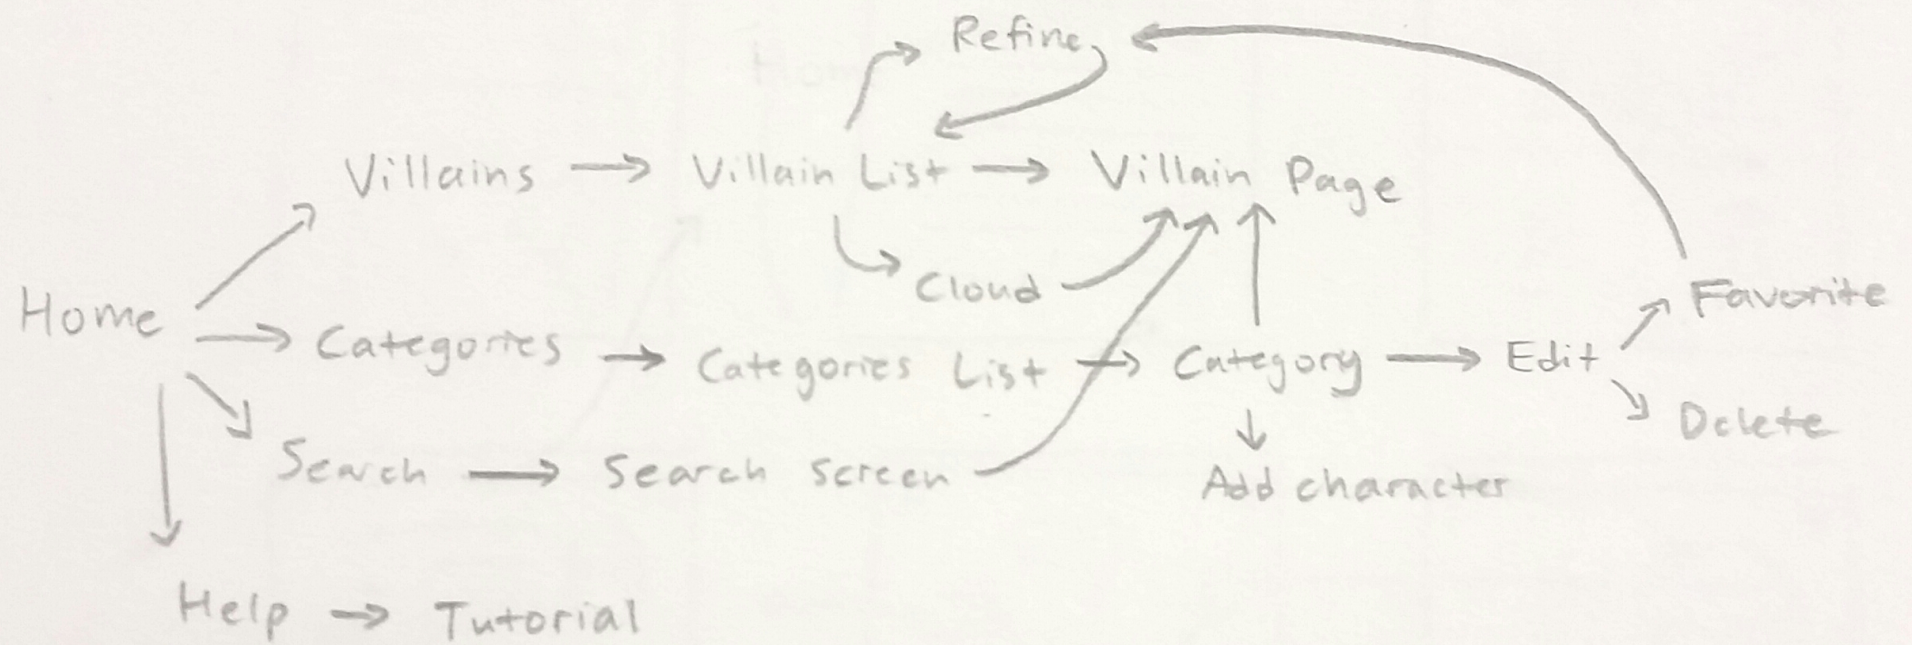 Refine
Villains
Villain List
Villain Page
Cloud
Home
Favorite
Categories
Categories List
Category
Edit
Delete
Search
Search Screen
Add character
Help
Tutorial